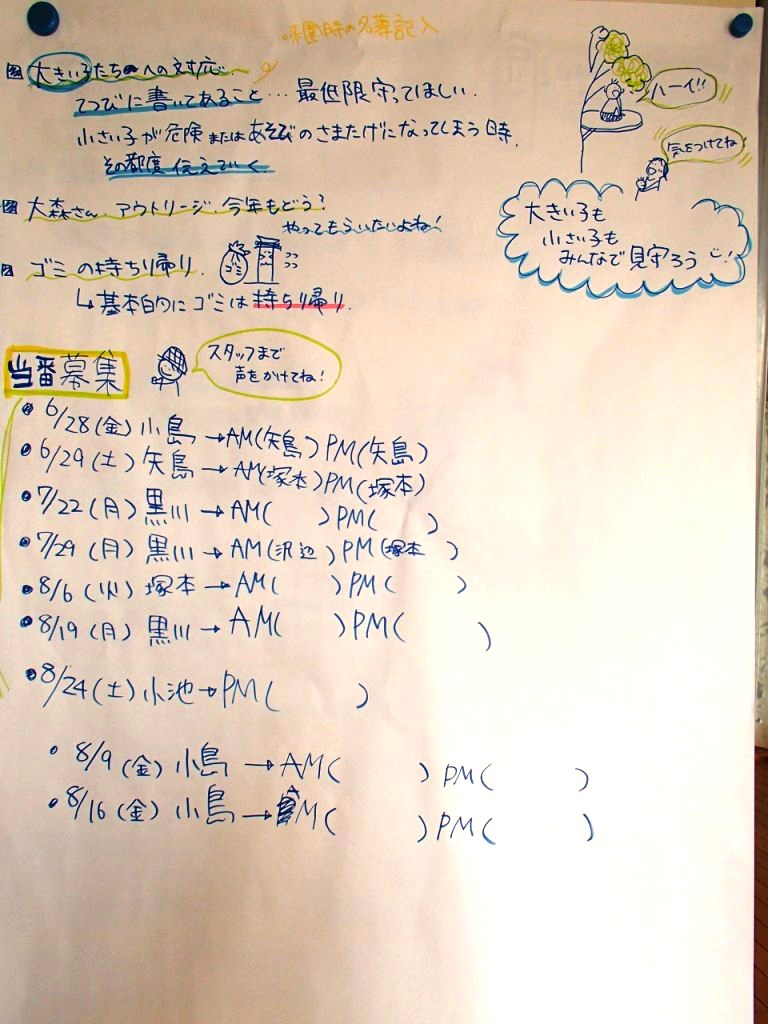 来園時の名簿記入
大きい子たちへの対応
てつびに書いてあること…最低限守ってほしい.
小さい子が危険またはあそびのさまたげになってしまう時.
その都度伝えていく.
大森さん.アウトリージ.今年もどう?
やってもらいたいよね!
ゴミの持ち帰り.
ゴミ
↳基本的にゴミは持ち帰り.
ハーイ!!
気をつけてね!
大きい子も
小さい子も
みんなで見守ろう!
当番募集
スタッフまで
声をかけてね!
・6/28(金)小島→AM(矢島)PM(矢島)
・6/29(土)矢島→AM(塚本)PM(塚本)
・7/22(月)黒川→AM(　)PM(　)
・7/29(月)黒川→AM(沢辺)PM(塚本)
・8/6(火)塚本→AM(　)PM(　)
・8/19(月)黒川→AM(　)PM(　)
・8/24(土)小池→PM(　)
・8/9(金)小島→AM(　)PM(　)
・8/16(金)小島→AM(　)PM(　)